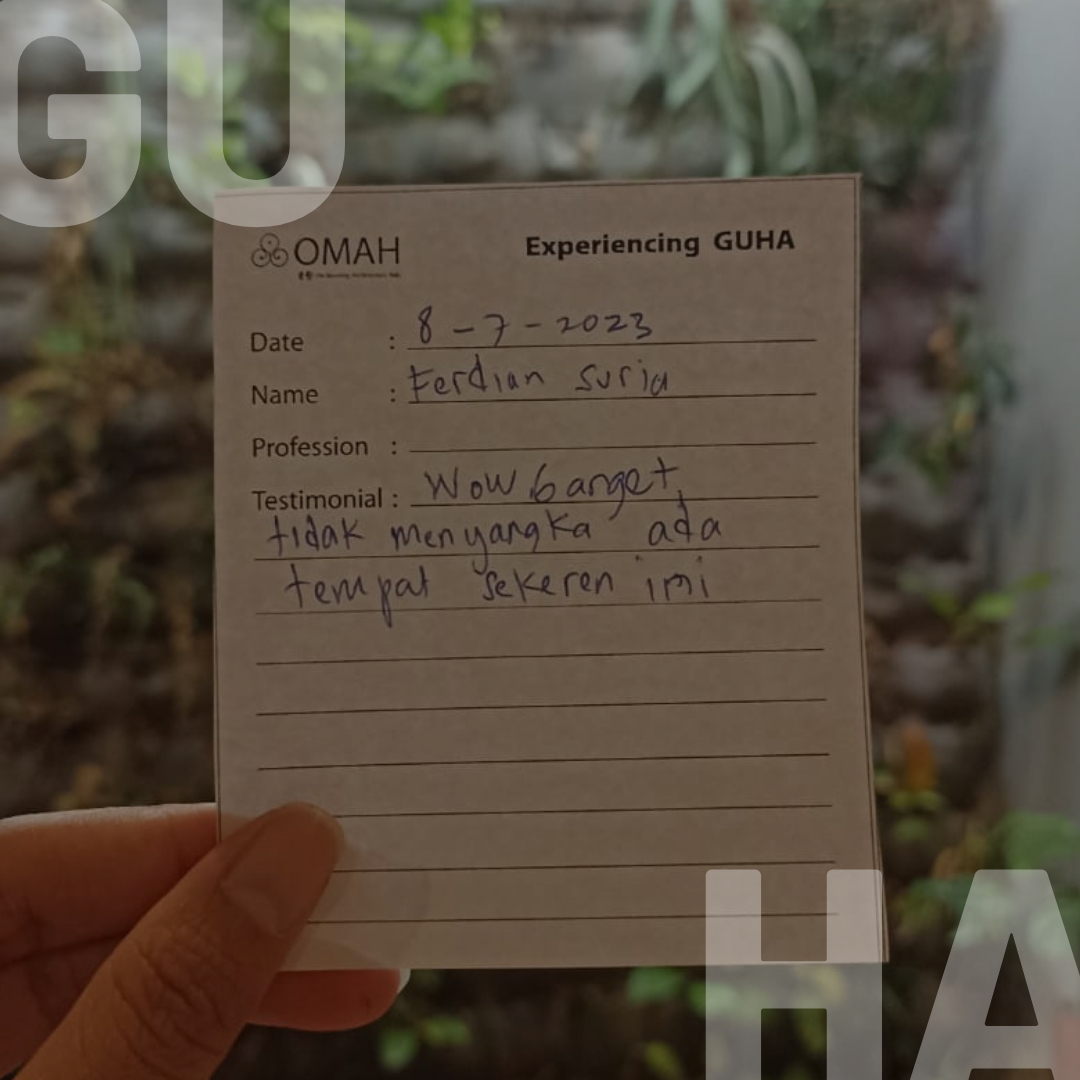 GU
OMAH
Experiencing GUHA
Date : 8-7-2023
Name : Ferdian Suria
Profession :
Testimonial : Wow banget,
tidak menyangka ada
tempat sekeren ini
HA